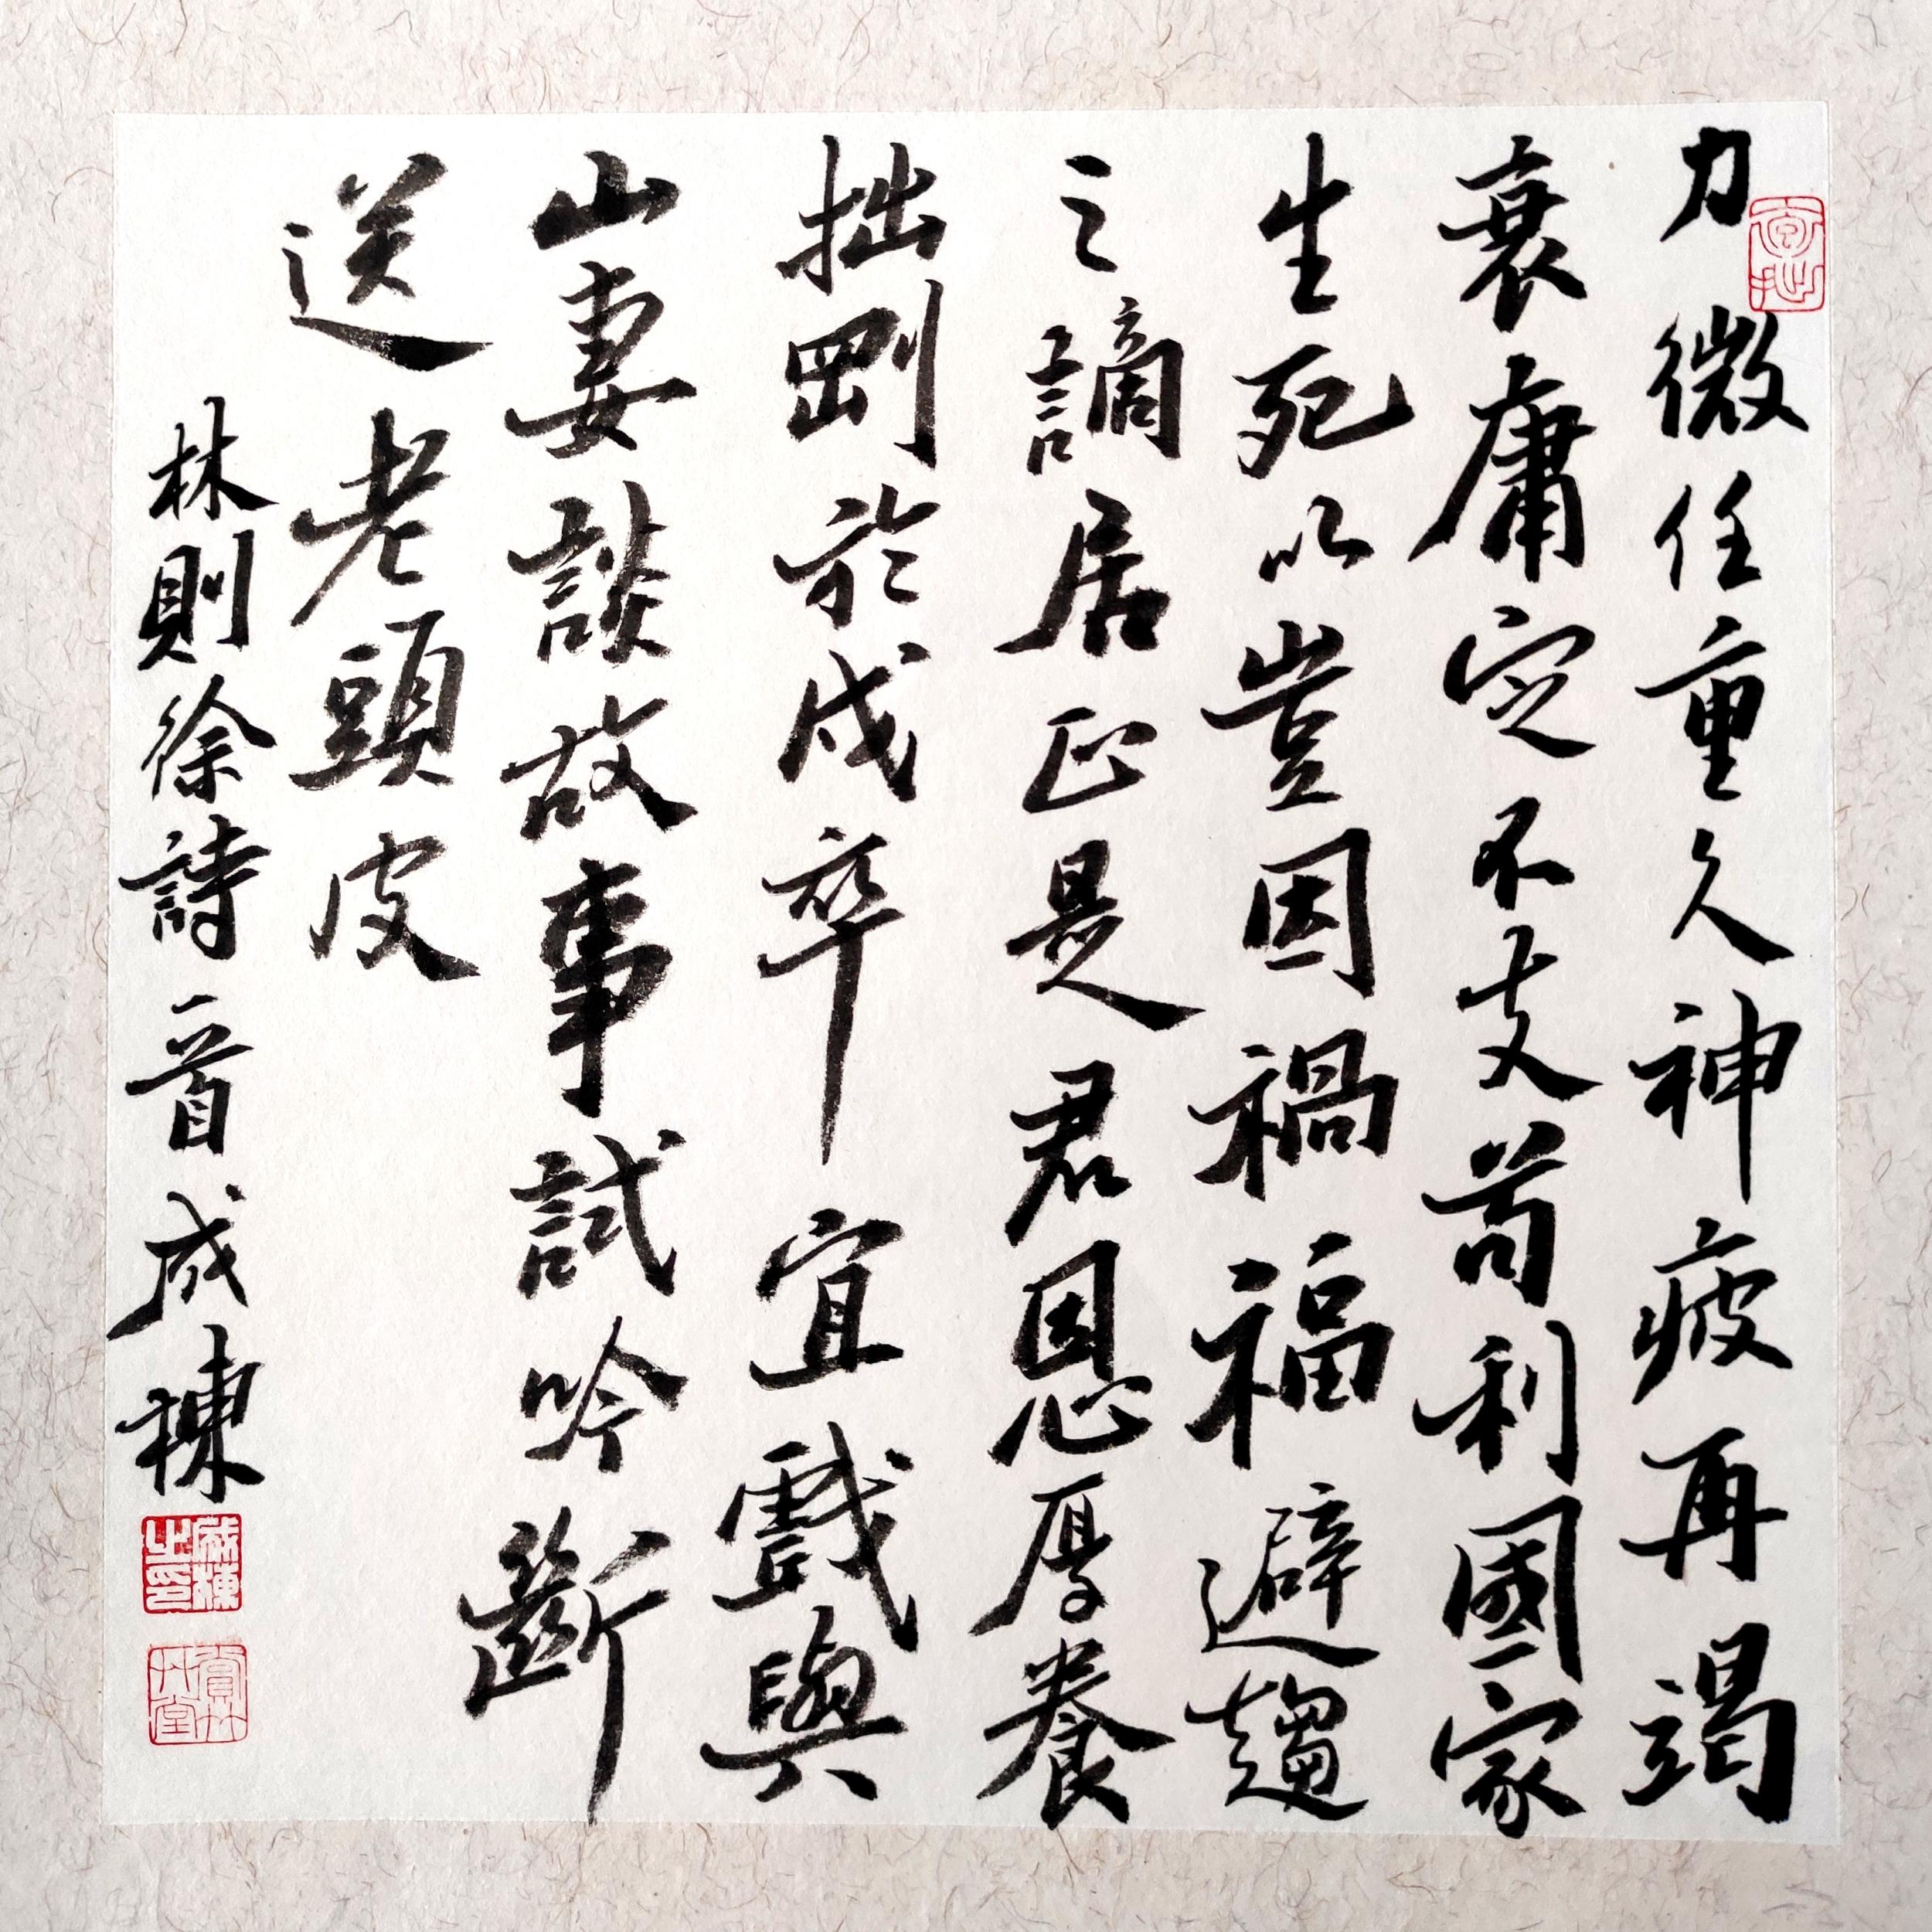 力微任重久神疲再竭
衰庸定不支苟利國家
生死以豈因禍福避趨
之謫居正是君恩厚養
拙剛於戍卒宜戲與
山妻談故事試吟斷
送老頭皮
林則徐詩一首成棟
成棟之印